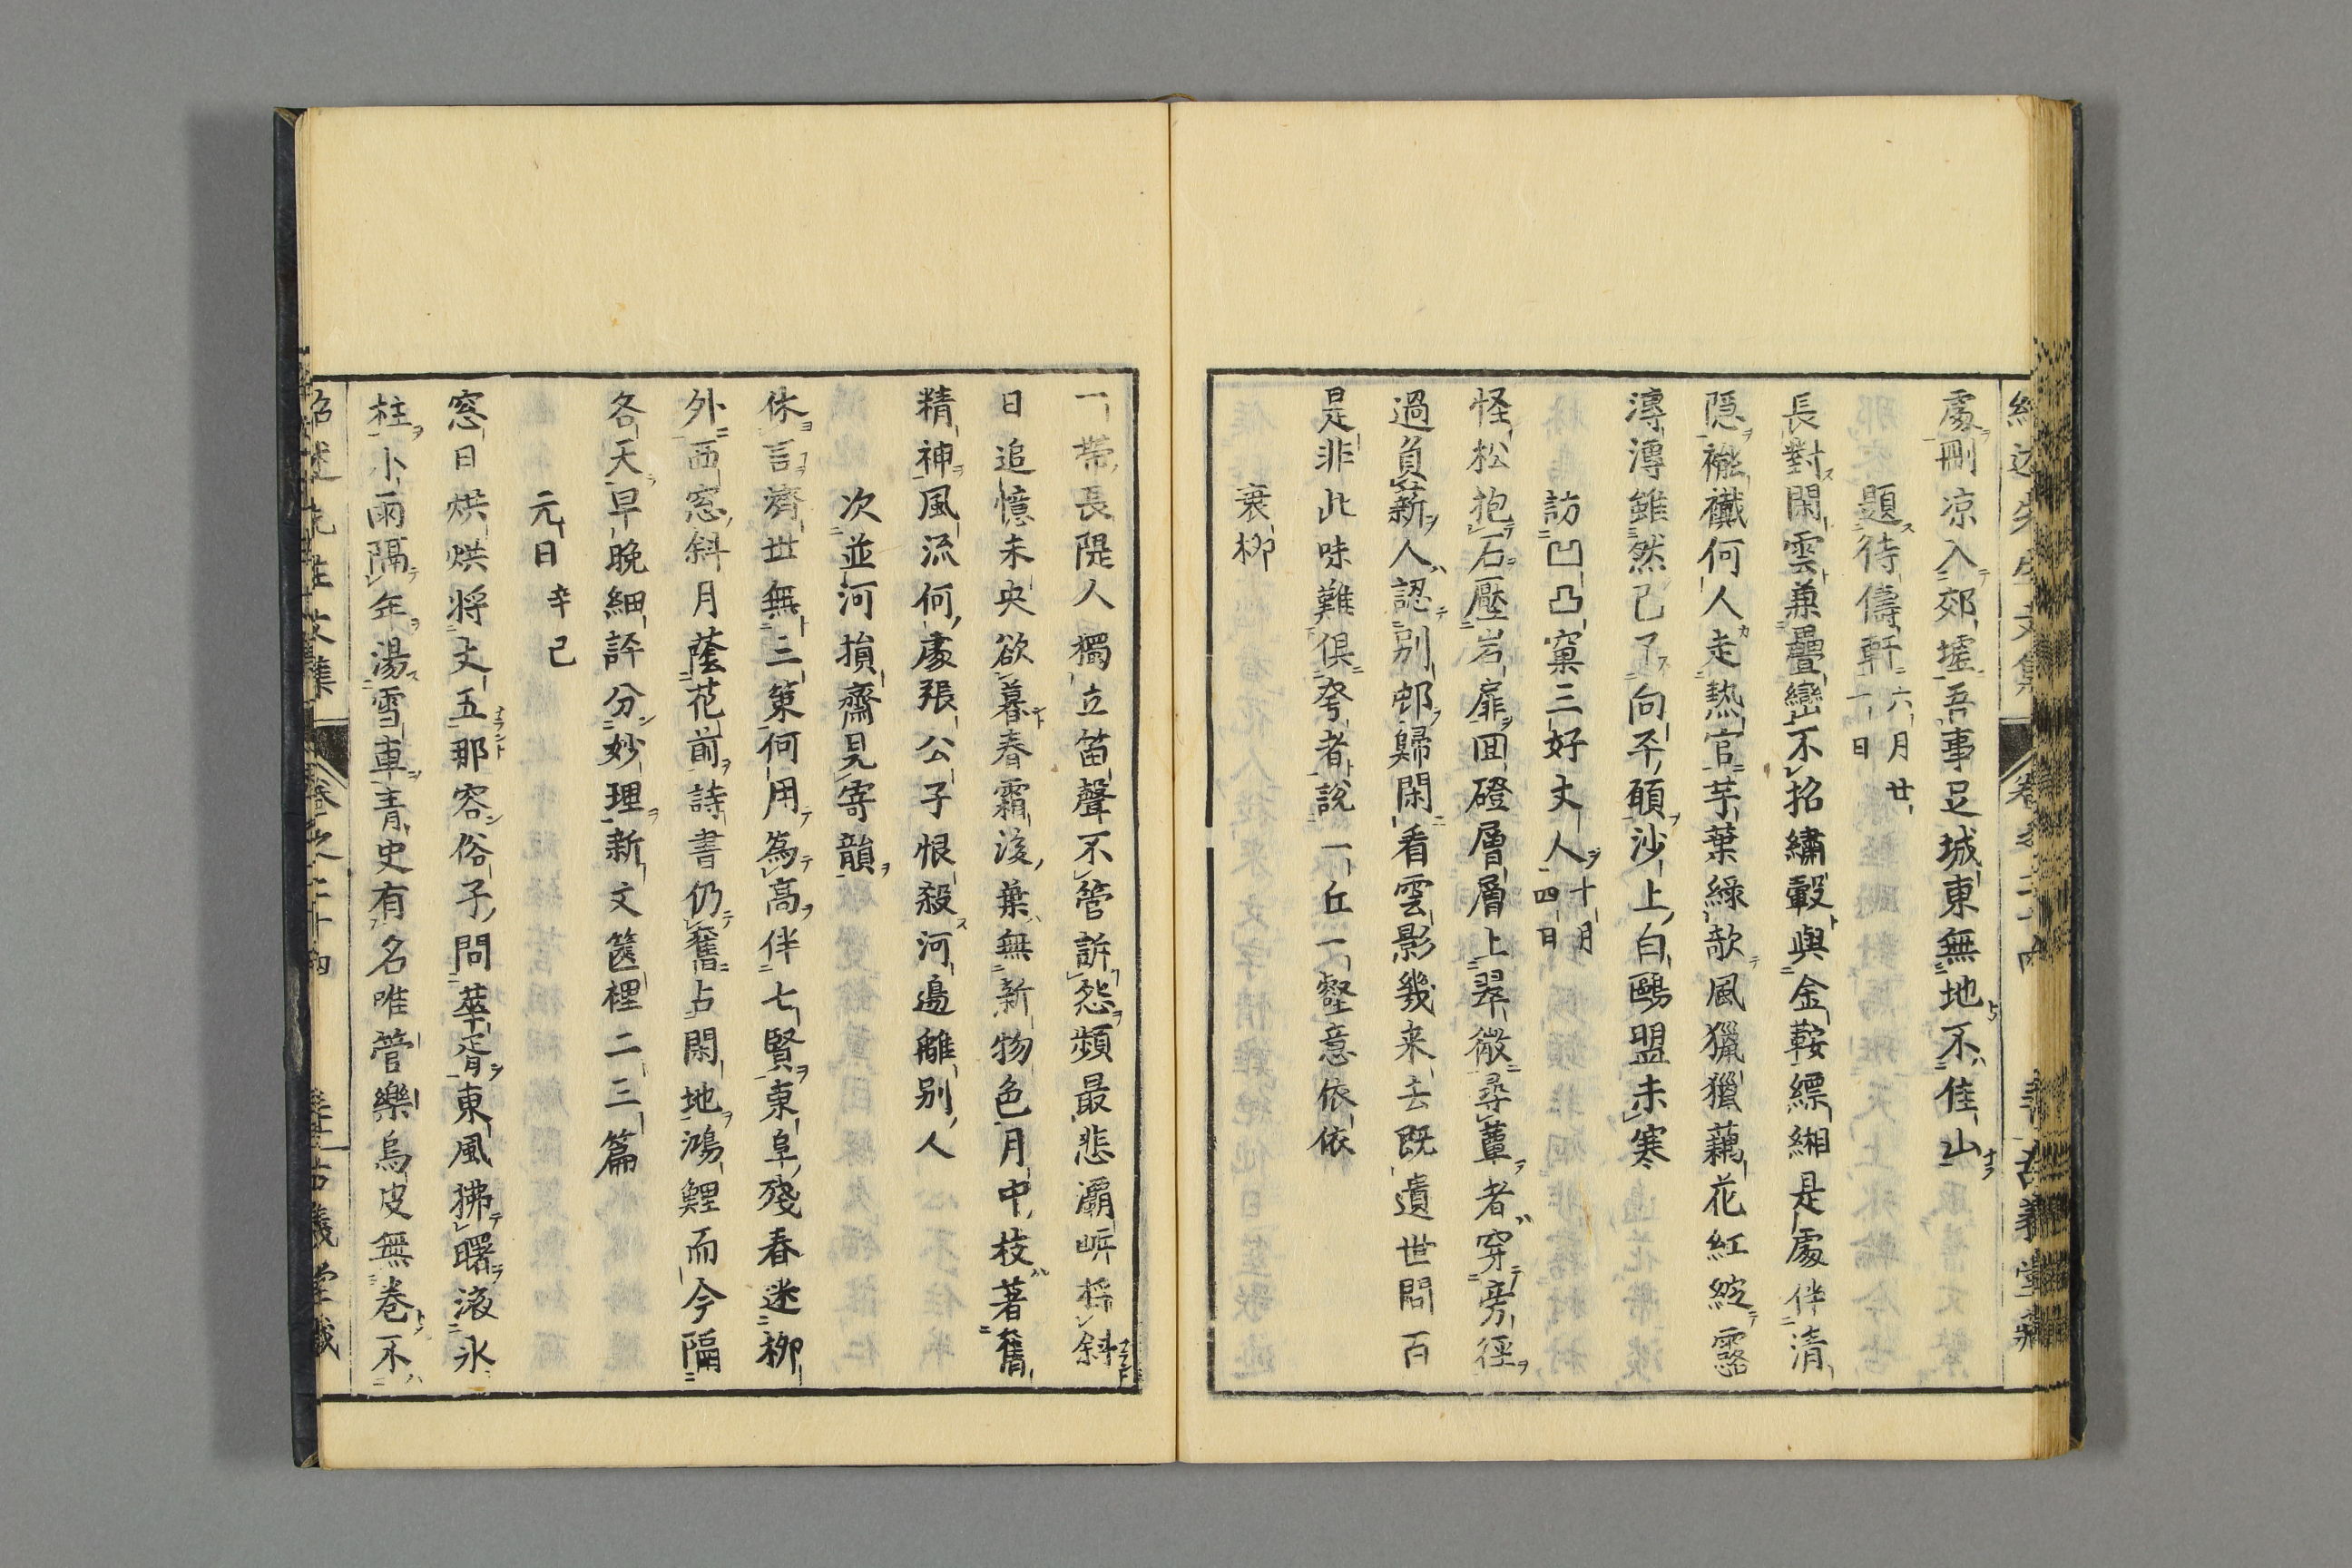 處刪凉入郊墟吾事足城東無地不佳山
題待儔軒六月廿一日
長對閑雲兼疊巒不招繡轂與金鞍縹緗是處伴清
隠襤襳何人走熱官芋葉綠欹風獵獵藕花紅綻露
漙漙雖然已了向平願沙上白鷗盟未寒
訪凹凸窠三好丈人十月四日
怪松抱石壓岩扉囬磴層層上翠微尋蕈者穿旁徑
過負薪人認別邨歸閑看雲影幾来去既遺世間百
是非此味難倶夸者說一丘一壑意依依
衰柳
一帶長隄人獨立笛聲不管訴怨頻最悲灞岍搖斜
日追憶未央欲暮春霜後葉無新物色月中枝著舊
精神風流何處張公子恨殺河邊離別人
次並河損齋見寄韻
休言濟世無三策何用為高伴七賢東阜殘春迷柳
外西窓斜月蔭花前詩書仍舊占閑地鴻鯉而今隔
各天早晩細評分妙理新文篋裡二三篇
元日辛巳
窓日烘烘将丈五那容俗子問華胥東風拂曙滚氷
柱小雨隔年湯雪車青史有名唯管樂烏皮無卷不
紹述先生文集 卷之二十四 古義堂藏